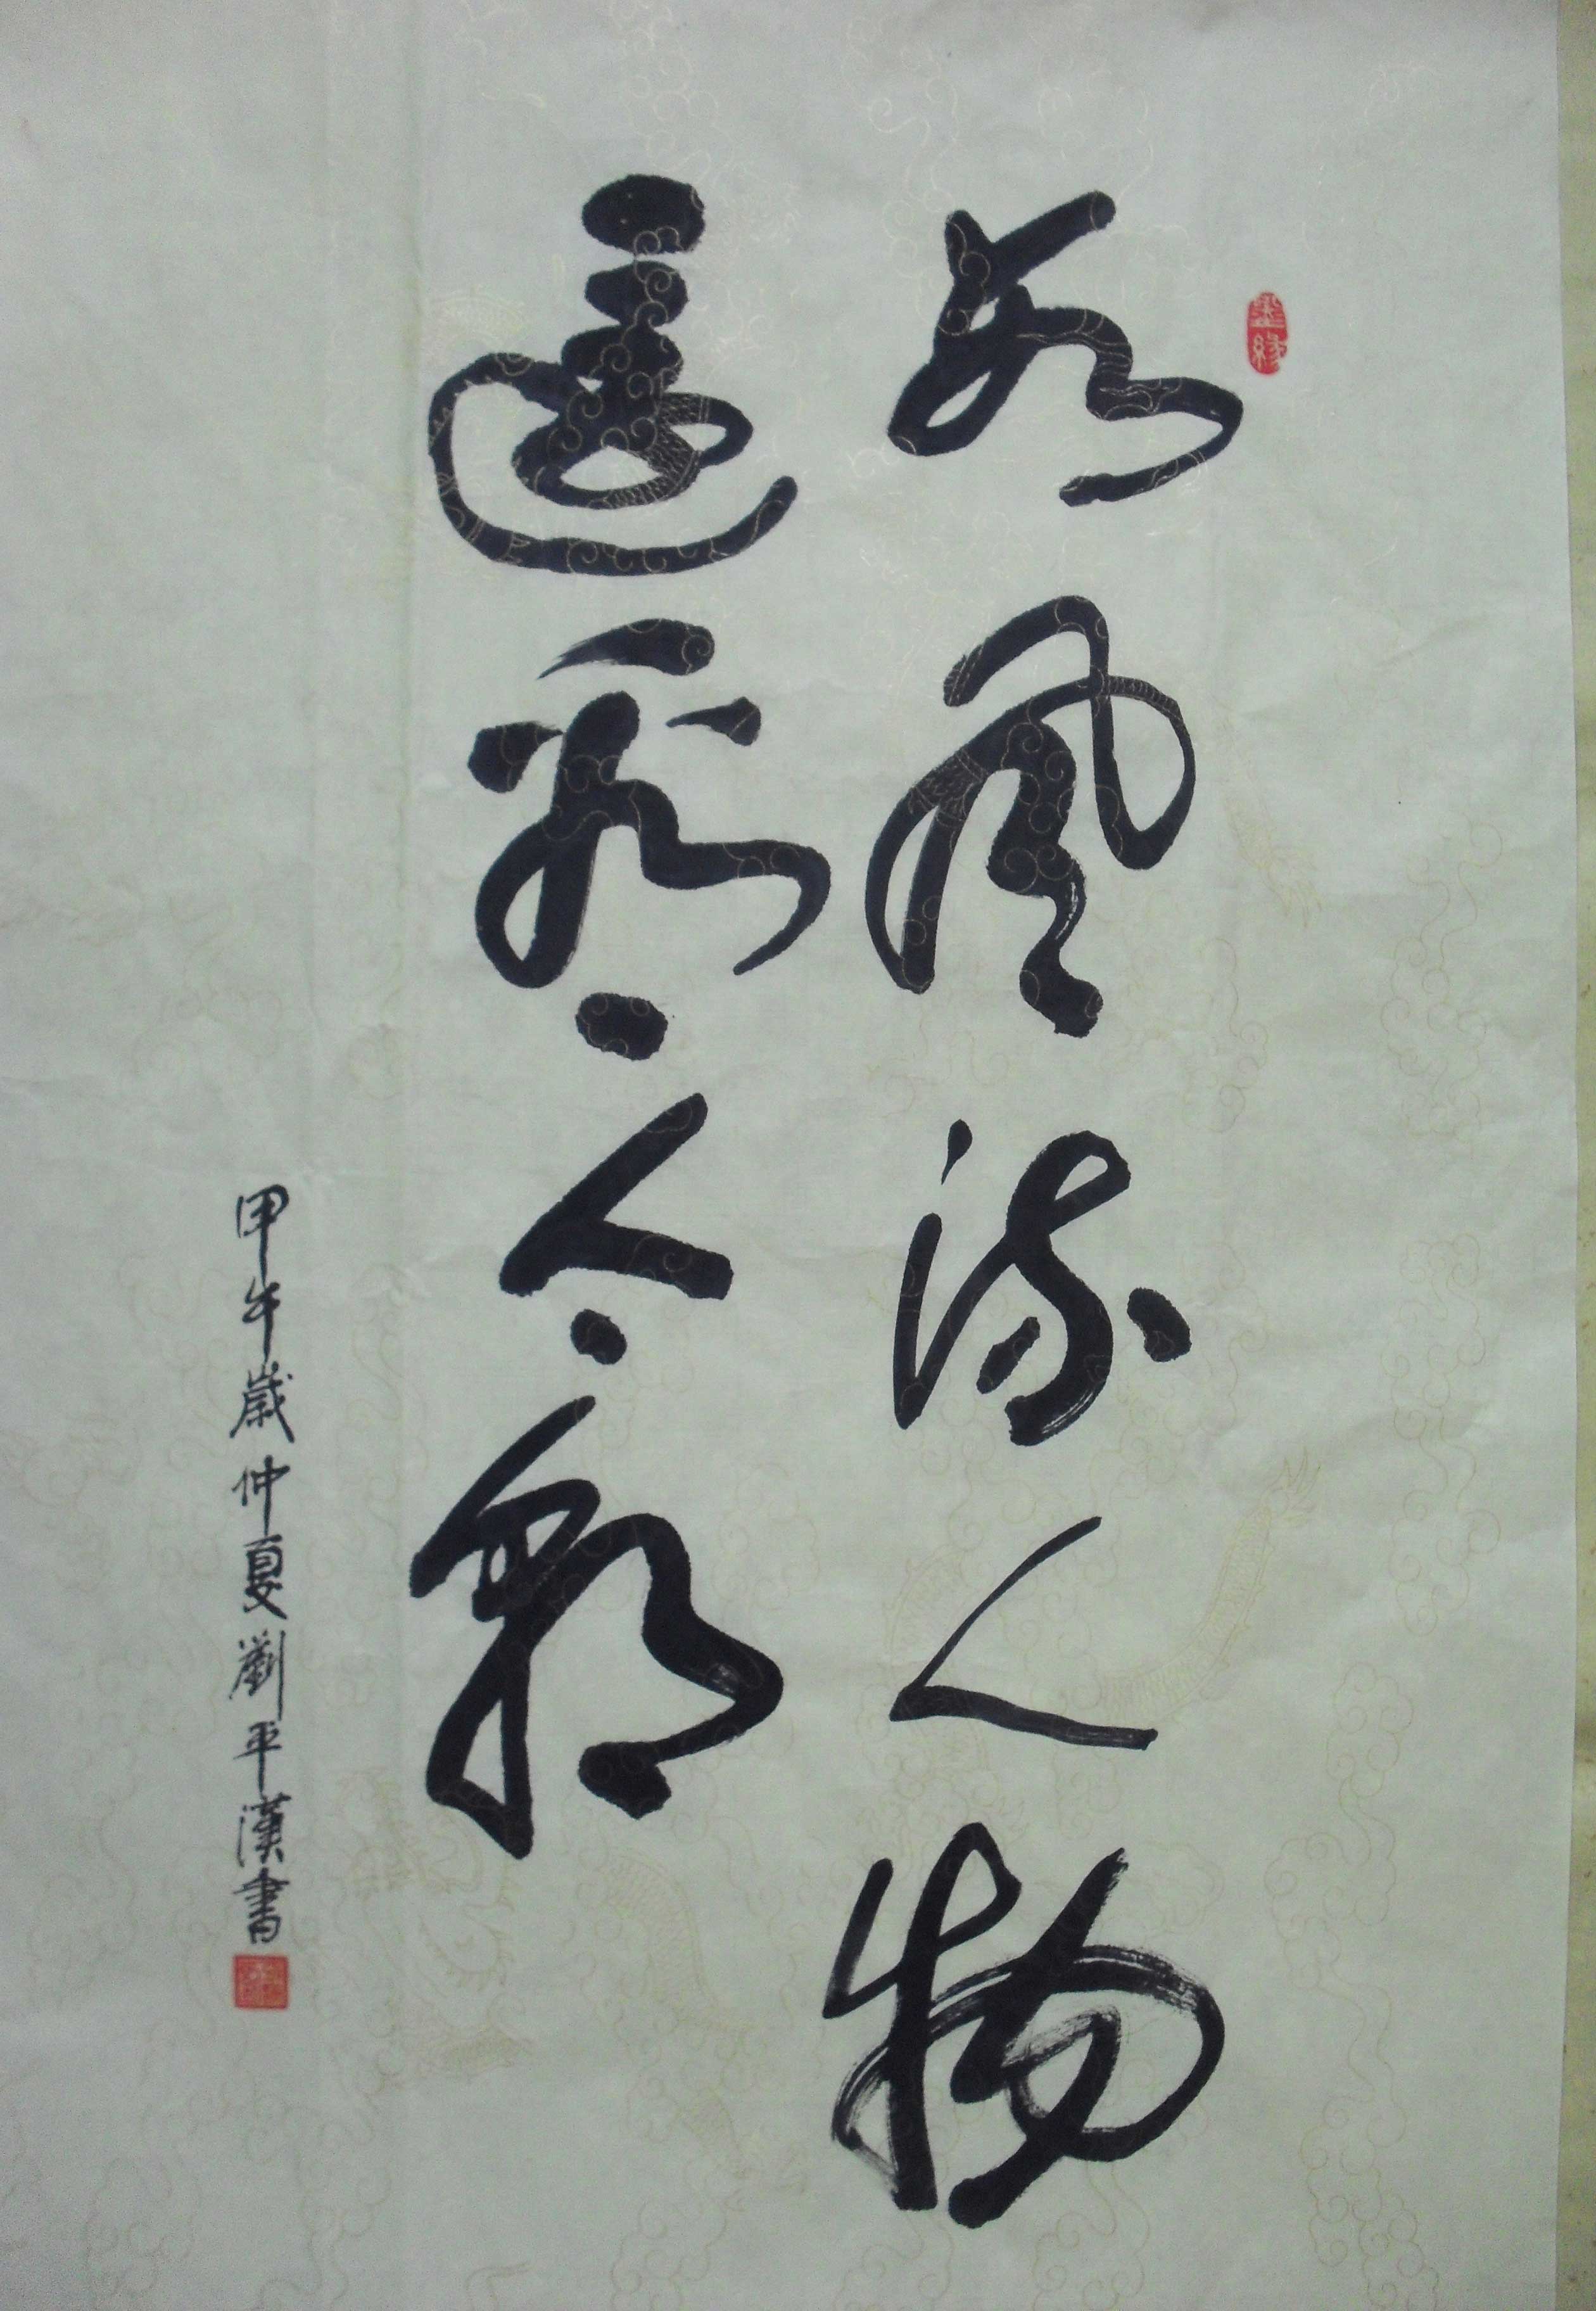 數風流人物
還看今朝
甲午歲仲夏劉平漢書
墨緣